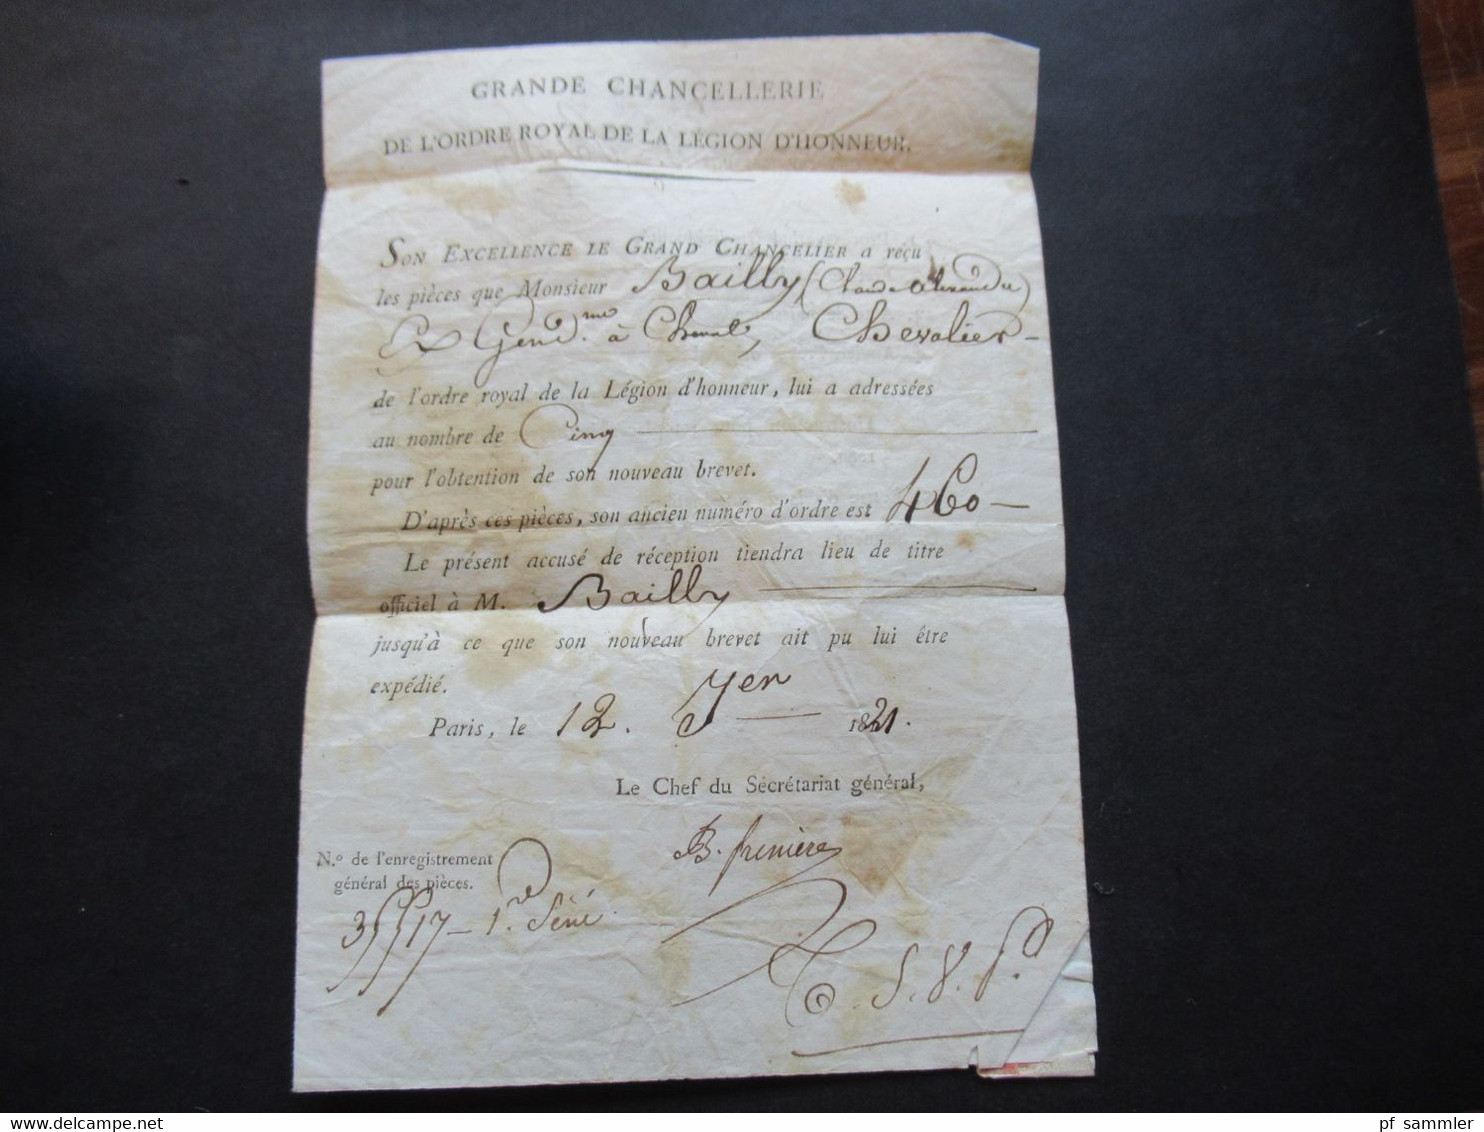 GRANDE CHANCELLERIE
DE L'ORDRE ROYAL DE LA LÉGION D'HONNEUR.
SON EXCELLENCE LE GRAND CHANCELIER a reçu
les pièces que Monsieur Bailly (Claude Alexandre)
Gend.me à Cheval, Chevalier
de l'ordre royal de la Légion d'honneur, lui a adressées
au nombre de Cinq
pour l'obtention de son nouveau brevet.
D'après ces pièces, son ancien numéro d'ordre est 460
Le présent accusé de réception tiendra lieu de titre
officiel à M. Bailly
jusqu'à ce que son nouveau brevet ait pu lui être
expédié.
Paris, le 12. 1821.
Le Chef du Secrétariat général,
N.o de l'enregistrement
général des pièces.
T. S. V. P.
pf sammler